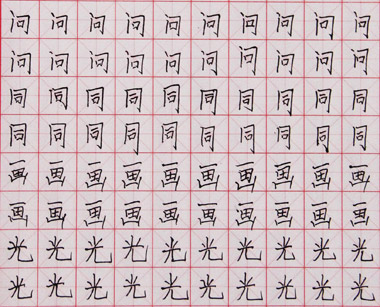 问问问问问问问问问问
问问问问问问问问问问
同同同同同同同同同同
同同同同同同同同同同
画画画画画画画画画画
画画画画画画画画画画
光光光光光光光光光光
光光光光光光光光光光